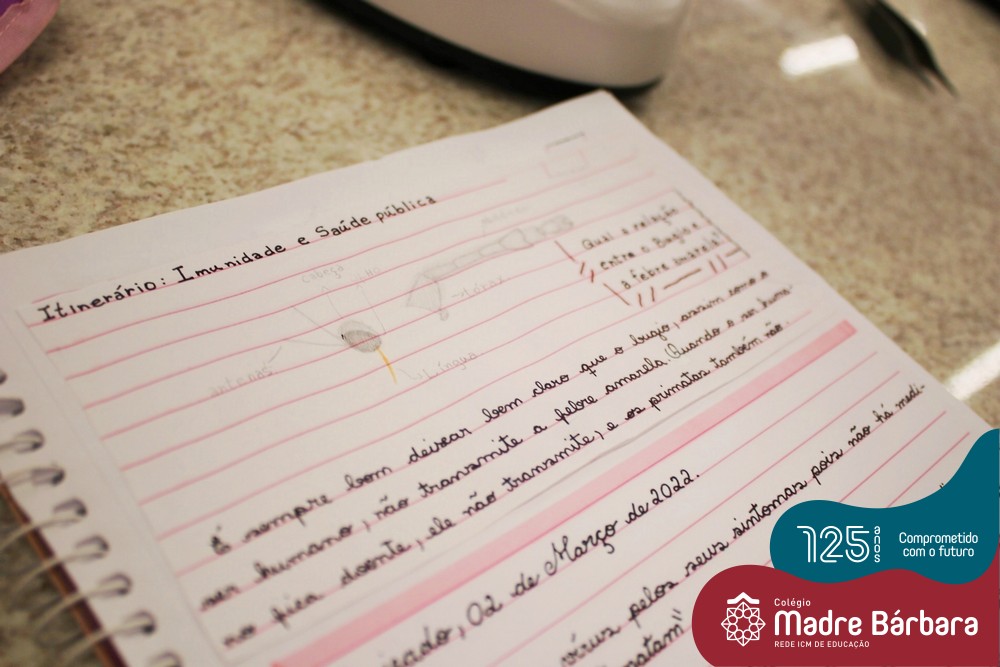 Itinerário: Imunidade e Saúde pública
cabeça
Qual a relação
entre o Bugio e
a febre amarela?
antenas
Língua
É sempre bom deixar bem claro que o bugio, assim como o
ser humano, não transmite a febre amarela. Quando o ser huma-
no fica doente, ele não transmite, e os primatas também não.
02 de Março de 2022.
vírus pelos seus sintomas pois não há medi-
matam"
125 anos
Comprometido
com o futuro
Colégio
Madre Bárbara
REDE ICM DE EDUCAÇÃO